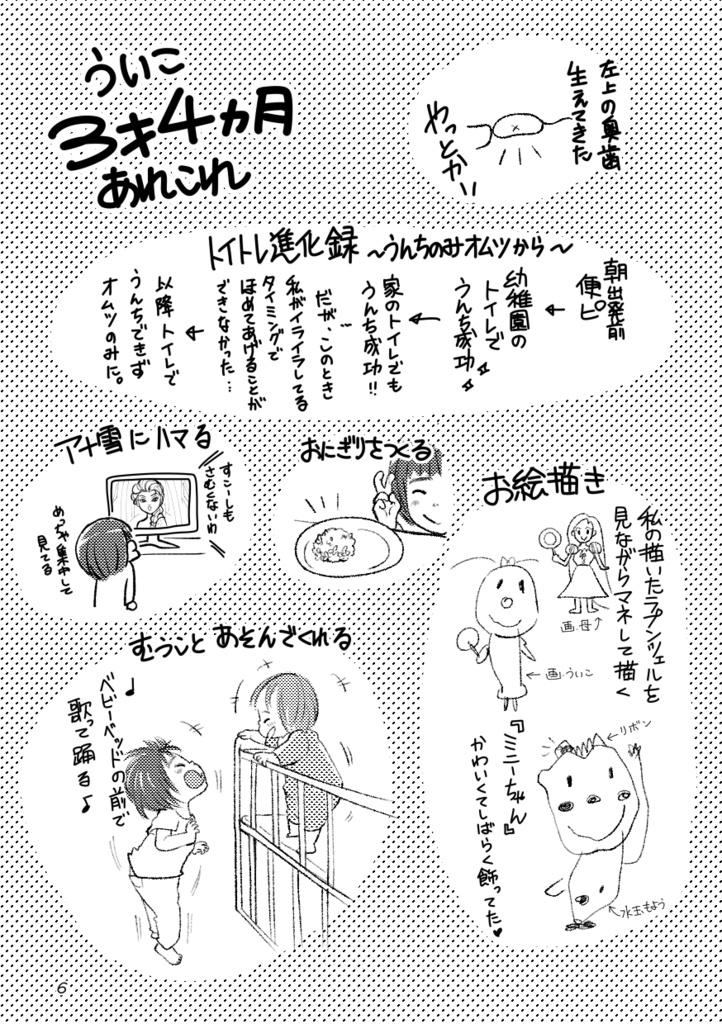 ういこ
3才4ヵ月
あれこれ
左上の奥歯
生えてきた
やっとかい
トイトレ進化録 〜うんちのみオムツから〜
朝出発前
便ピ
←
幼稚園の
トイレで
うんち成功
←
家のトイレでも
うんち成功!!
…
だが、このとき
私がイライラしてる
タイミングで
ほめてあげることが
できなかった…
←
以降トイレで
うんちできず
オムツのみに。
アナ雪にハマる
すこーしも
さむくないわ
めっちゃ集中して
見てる
おにぎりをつくる
お絵描き
私の描いたラプンツェルを
見ながらマネして描く
画.母↑
←画.ういこ
『ミニーちゃん』
かわいくてしばらく飾ってた♥
←リボン
←水玉もよう
むうことあそんでくれる
♪
ベビーベッドの前で
歌って踊る♪
6